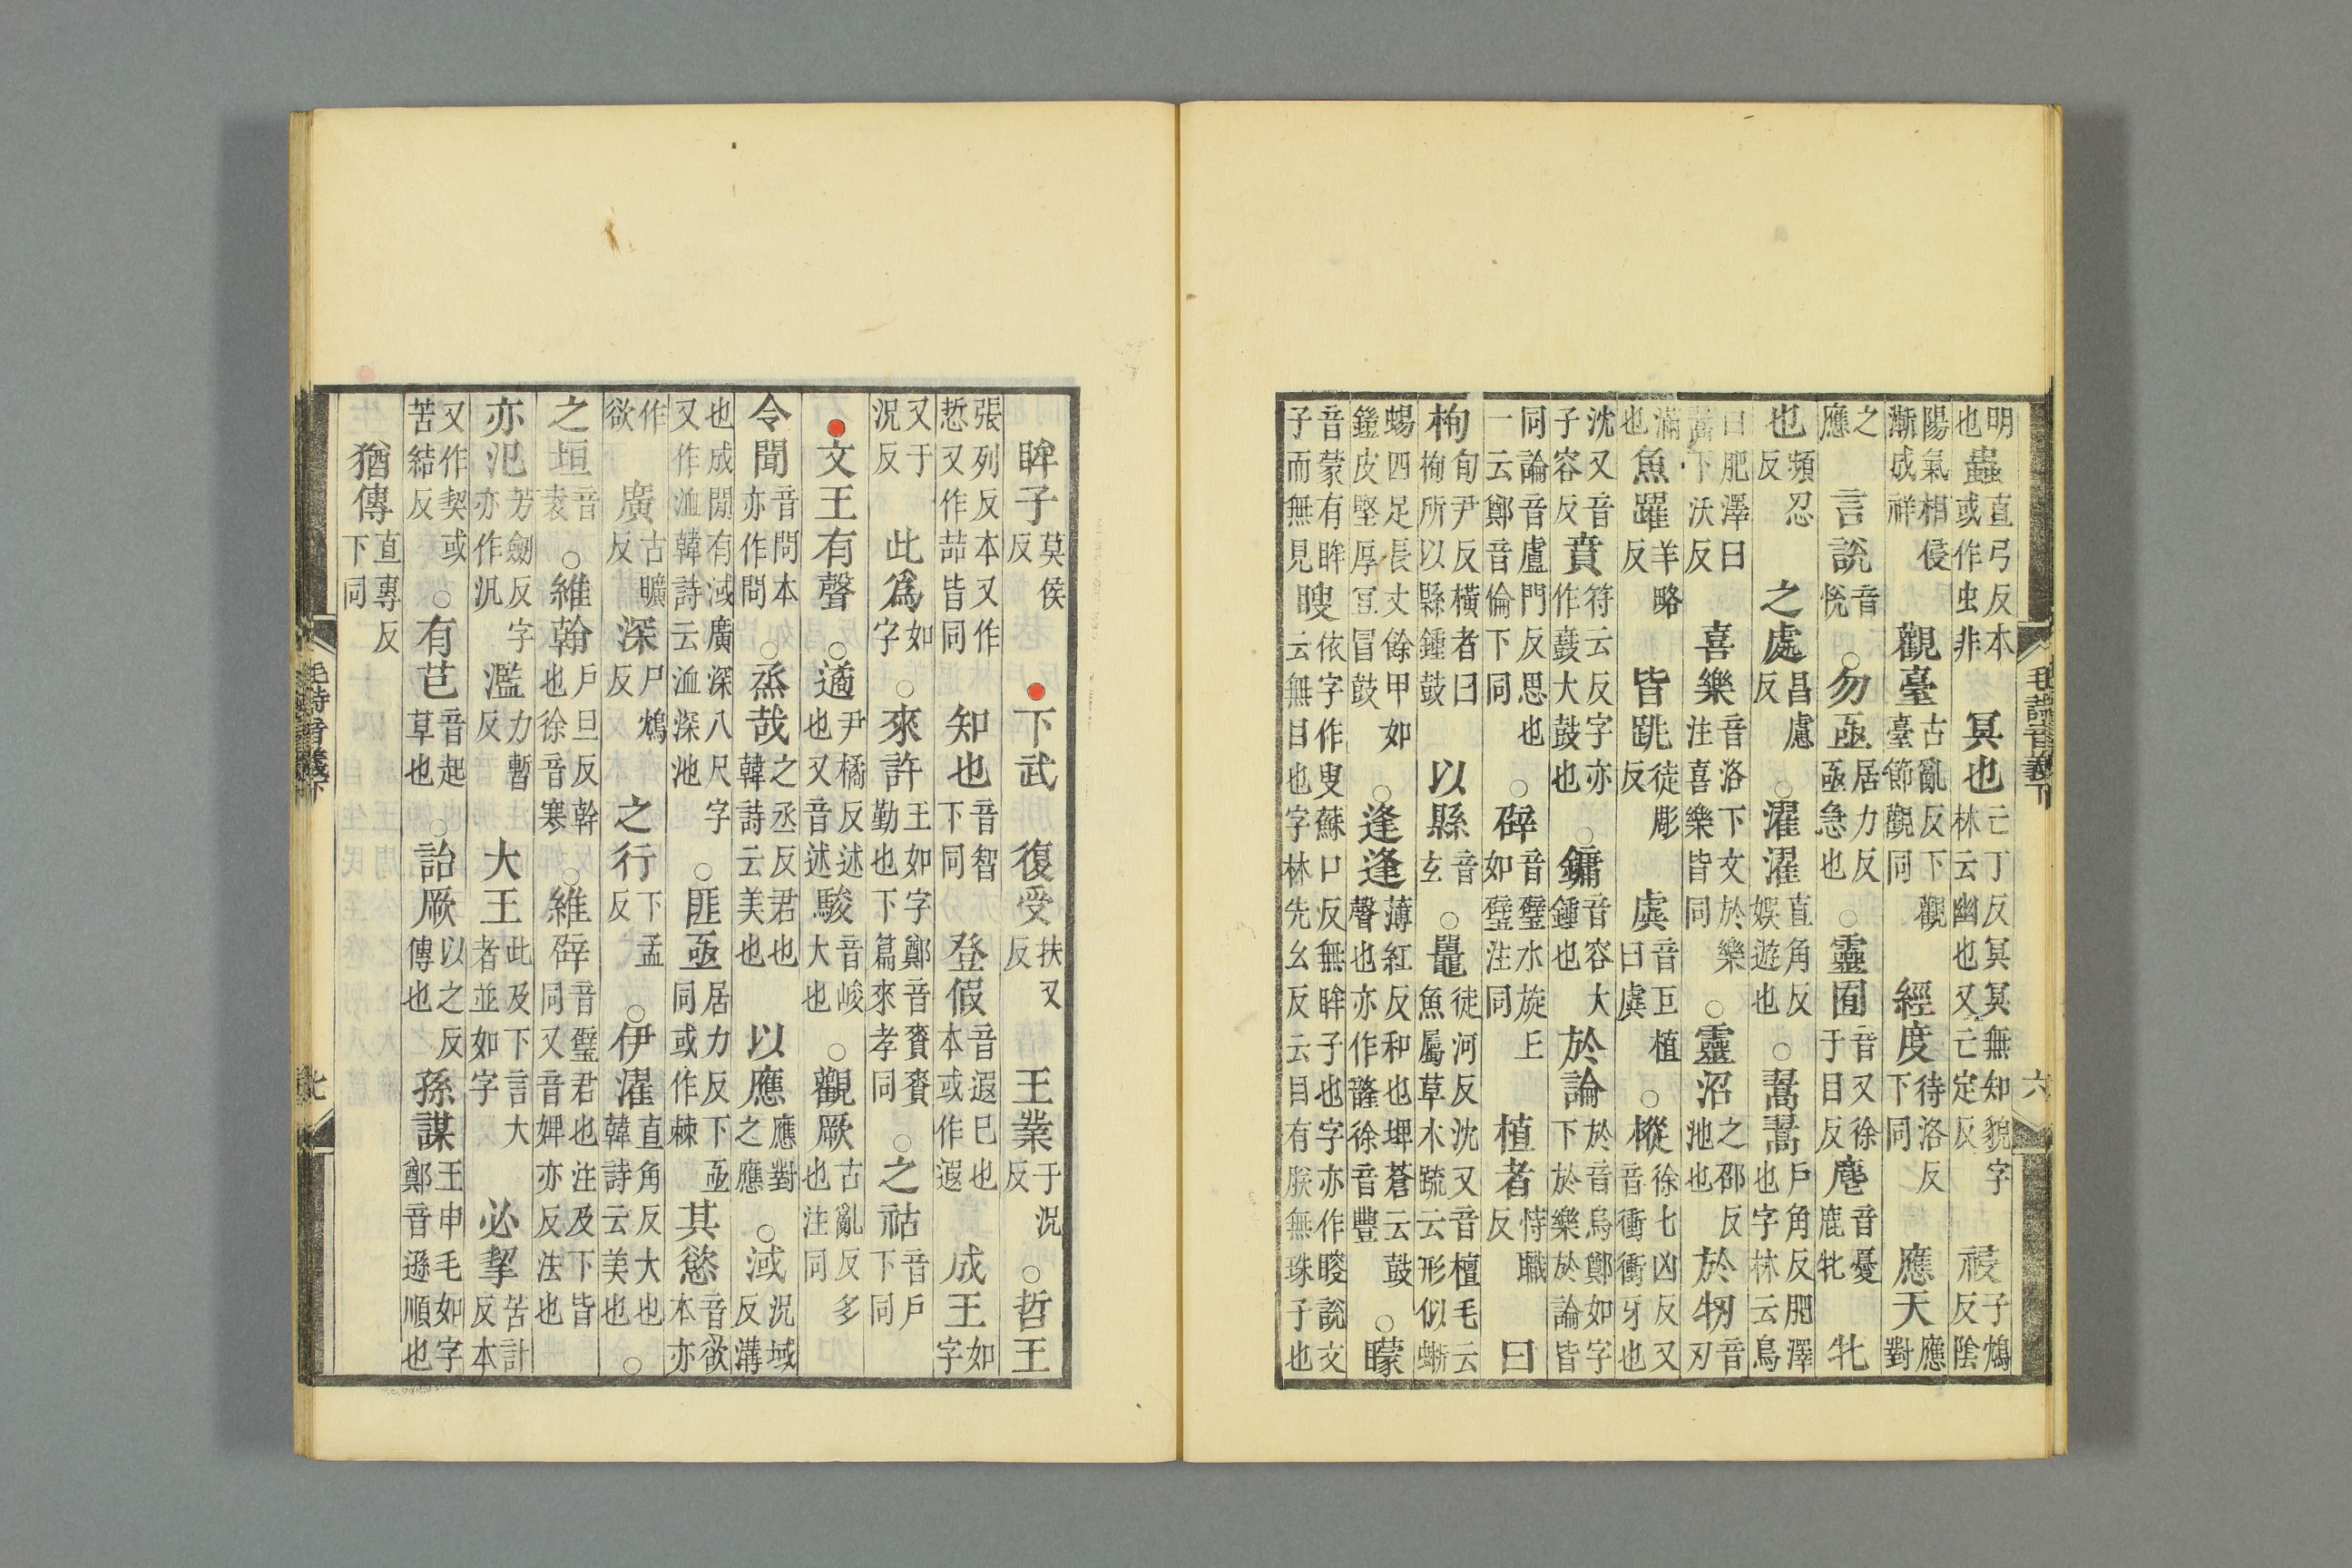 明也蟲直弓反本或作虫非冥也亡丁反冥冥無知貌字林云幽也又亡定反祲子鴆反陰
陽氣相侵漸成祥觀臺古亂反下觀臺節觀同經度待洛反下同應天應對
之應言說音悅○勿亟居力反亟急也○靈囿音又徐于目反麀音憂鹿牝牝
也頻忍反之處昌慮反○濯濯直角反娛遊也○翯翯戶角反肥澤也字林云鳥
曰肥澤曰翯下沃反喜樂音洛下文於樂注喜樂皆同○靈沼之邵反池也於牣音刃
滿也魚躍羊略反皆跳徒彫反虡音巨植曰虡○樅徐七凶反又音衝衝牙也
沈又音子容反賁符云反字亦作鼖大鼓也○鏞音容大鍾也於論於音烏鄭如字下於樂於論皆
同論音盧門反思也一云鄭音倫下同○辟音璧水旋丘如璧注同植者恃職反曰
栒旬尹反橫者曰栒所以縣鍾鼓以縣音玄○鼉徒河反沈又音檀毛云魚屬草木疏云形似蜥
蜴四足長丈餘甲如鎧皮堅厚宜冒鼓○逢逢薄紅反和也埤蒼云鼓聲也亦作韸徐音豐○矇
音蒙有眸子而無見瞍依字作叟蘇口反無眸子也字亦作䁂說文云無目也字林先幺反云目有朕無珠子也
毛詩音義下
六
眸子莫侯反下武復受扶又反王業于況反○哲王
張列反本又作悊又作喆皆同知也音智下同登假音遐已也本或作遐成王如字
又于況反此爲如字○來許王如字鄭音賚賚勤也下篇來孝同○之祜音戶下同
文王有聲○遹尹橘反述也又音述駿音峻大也○觀厥古亂反多也注同
令聞音問本亦作問○烝哉之丞反君也韓詩云美也以應應對之應○淢況域反溝
也成閒有淢廣深八尺字又作洫韓詩云洫深池○匪亟居力反下亟同或作棘其慾音欲本亦
作欲廣古曠反深尸鴆反之行下孟反○伊濯直角反大也韓詩云美也○
之垣音袁○維翰戶旦反幹也徐音寒○維辟音璧君也注及下皆同又音婢亦反法也
亦氾芳劒反字亦作汎濫力暫反大王此及下言大王者並如字必挈苦計反本
又作契或苦結反○有芑音起草也○詒厥以之反傳也孫謀王申毛如字鄭音遜順也
猶傳直專反下同
毛詩音義下
七